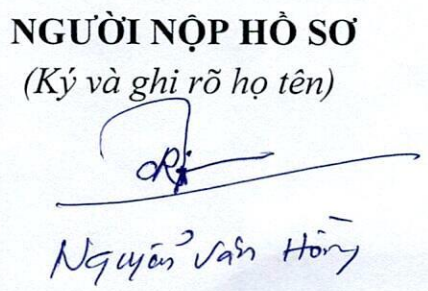 NGƯỜI NỘP HỒ SƠ
(Ký và ghi rõ họ tên)
Nguyễn Văn Hồng